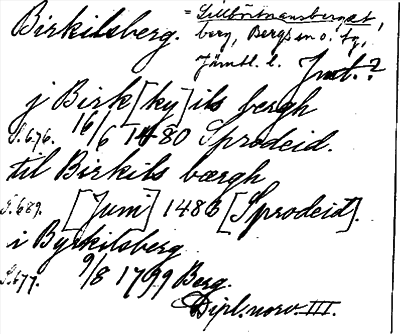 Birkilsberg. = Lillbörtnansberget,
berg, Bergs sn o. tg,
Jämtl. l. Jmt.?
j Birk[ky]ils bergh
S. 676. 16/6 1480 Sprodeid.
til Birkils bærgh
S. 689. [Juni] 1483 [Sprodeid].
i Byrkilsberg
S. 677. 9/8 1799 Berg.
Dipl. norv. III.